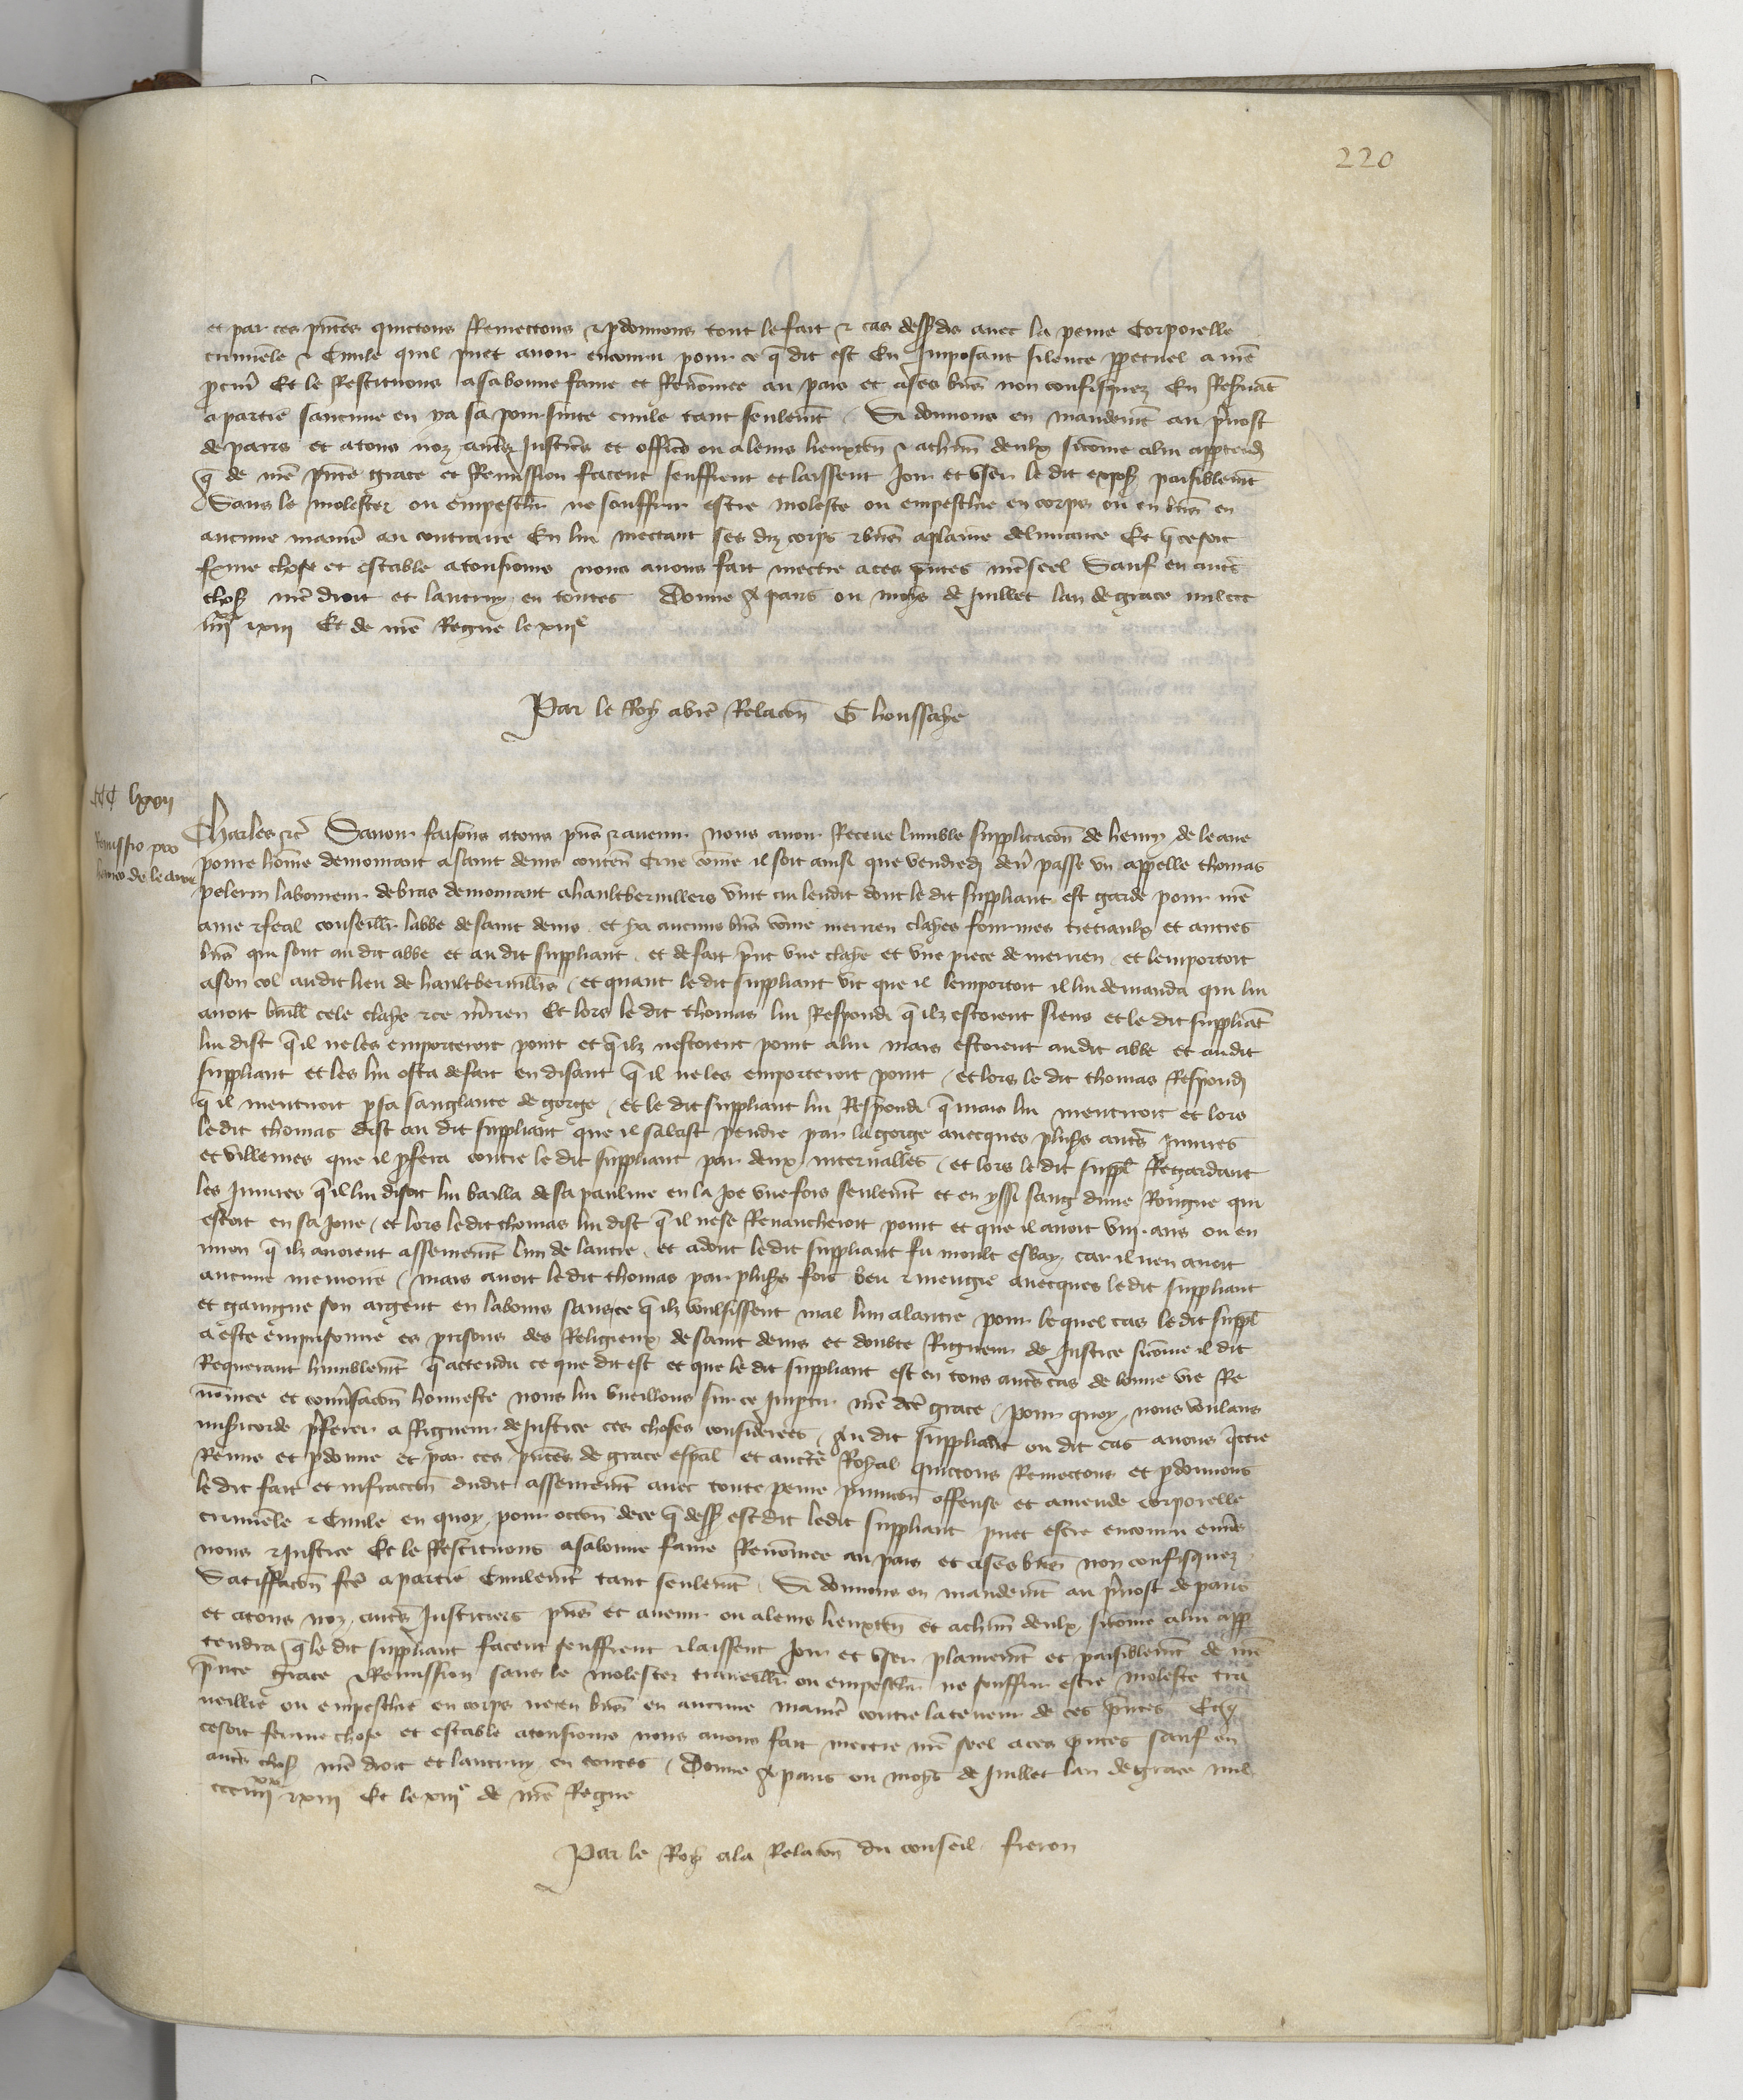 220
et par ces pntes quictons Remectons & pdonnons tout le fait & cas dessusdis avec la peine Corporelle
crimielle & Civile quil puet avoir encouru pour ce q dit est En Imposant silence ppetuel a nre
pcur Et le Restituons a sa bonne fame et Renomee au pais et a ses biens non confisquez En Reservat
a partie saucune en ya sa poursuite civile tant seulemt Si donnons en mandemt au prevost
de paris et a tous noz autres Justiciers et officiers ou a leurs lieuxten & a chun deulx sicome a lui apptendra
q de nre pnte grace et Remission facent seuffrent et laissent Joir et user le dit exposant paisiblemt
Sans le molester ou empeschier ne souffrir estre moleste ou empeschie en corps ou en biens en
aucune maniere au contraire En lui mectant ses diz corps & biens a plaine delivrance Et q ce soit
ferme chose et estable a tousiours nous avons fait mectre a ces pntes nre seel Sauf en autres
choses nre droit et lautruy en toutes Donne A paris ou moys de Juillet lan de grace mil ccc
iiiixx & xiii Et de nre Regne le xiiie
Par le Roy a vre Relacon G houssaye
CCC lxxvii
Remissio pro
henrico de le aue
Charles &c Savoir faisons a tous pns & avenir nous avoir Receue lumble supplicacon de henry de le aue
povre home demourant a saint denis conten Come come il soit ainsi que vendredi derr passe un appelle thomas
pelerin laboureur de bras demourant a haultbervilliers vint au lendit dont le dit suppliant est garde pour nre
ame & feal conseiller labbe de saint denis et ya aucuns biens come merren clayes fourmes tretiaulx et autres
biens qui sont au dit abbe et au dit suppliant et de fait prit une claye et une piece de merren et lemportoit
a son col audit lieu de haultbervillrs et quant le dit suppliant vit que il lemportoit il lui demanda qui lui
avoit baille cele claye & ce merren Et lors le dit thomas lui Respondi q ilz estoient siens et le dit suppliat
lui dist q il ne les emporteroit point et q ilz nestoient point a lui mais estoient au dit abbe et au dit
suppliant et les lui osta de fait en disant q il ne les emporteroit point et lors le dit thomas Respondi
q il mentiroit p sa sanglante de gorge et le dit suppliant lui Respondi q mais lui mentiroit et lors
le dit thomas dist au dit suppliant que il salast pendre par la gorge avecques plusrs autres Iniures
et villenies que il pfera contre le dit suppliant par deux intervalles et lors le dit suppl Regardant
les Iniures q il lui disoit lui bailla de sa paulme en la Joe une fois seulemt et en yssi sang dune Rongne qui
estoit en sa Joue et lors le dit thomas lui dist q il ne se Revancheroit point et que il avoit viii ans ou en
viron q ilz avoient assermt lun de lautre et adont le dit suppliant fu moult esbay car il nen avoit
aucune memoire mais avoit le dit thomas par plusrs fois beu & mengie avecques le dit suppliant
et gaingne son argent en labours sans ce q ilz voulsissent mal lun a lautre pour le quel cas le dit suppl
a este emprisonne es prisons des Religieux de saint denis et doubte Rigueur de Justice sicome il dit
Requerant humblemt q actendu ce que dit est et que le dit suppliant est en tous autres cas de bonne vie Re
nomee et conversacon honneste nous lui vueillons sur ce Impartir nre dce grace Pour quoy nous voulans
misericorde preferer a Rigueur de Justice ces choses considerees Au dit suppliant ou dit cas avons quicte
Remis et pdonne et par ces pntes de grace espal et aucte Royal quictons Remectons et pdonnons
le dit fait et infraccon dudit assermt avec toute peine punicon offense et amende corporelle
criminele & Civile en quoy pour occon de ce q dessus est dit ledit suppliant puet estre encouru envers
nous & Justice Et le Restituons a sa bonne fame Renomee au pais et a ses biens non confisquez
Satisffacon fce a partie Civilemt tant seulemt Si donnons en mandemt au prevost de paris
et a tous noz autres Justiciers pns et avenir ou a leurs lieuxten et a chun deulx sicome a lui app
tendra q le dit suppliant facent seuffrent & laissent Joir et user plainemt et paisiblemt de nre
pnte grace & Remission sans le molester traveillier ou empeschier ne souffrir estre moleste tra
veillie ou empeschie en corps ne en biens en aucune maniere contre la teneur de ces pntes Et q
ce soit ferme chose et estable a tousiours nous avons fait mectre nre seel a ces pntes sauf en
autres choses nre droit et lautruy en toutes Donne A paris ou moys de Juillet lan de grace mil
ccc iiiixx & xiii Et le xiiie de nre Regne
Par le Roy a la Relacon du conseil freron